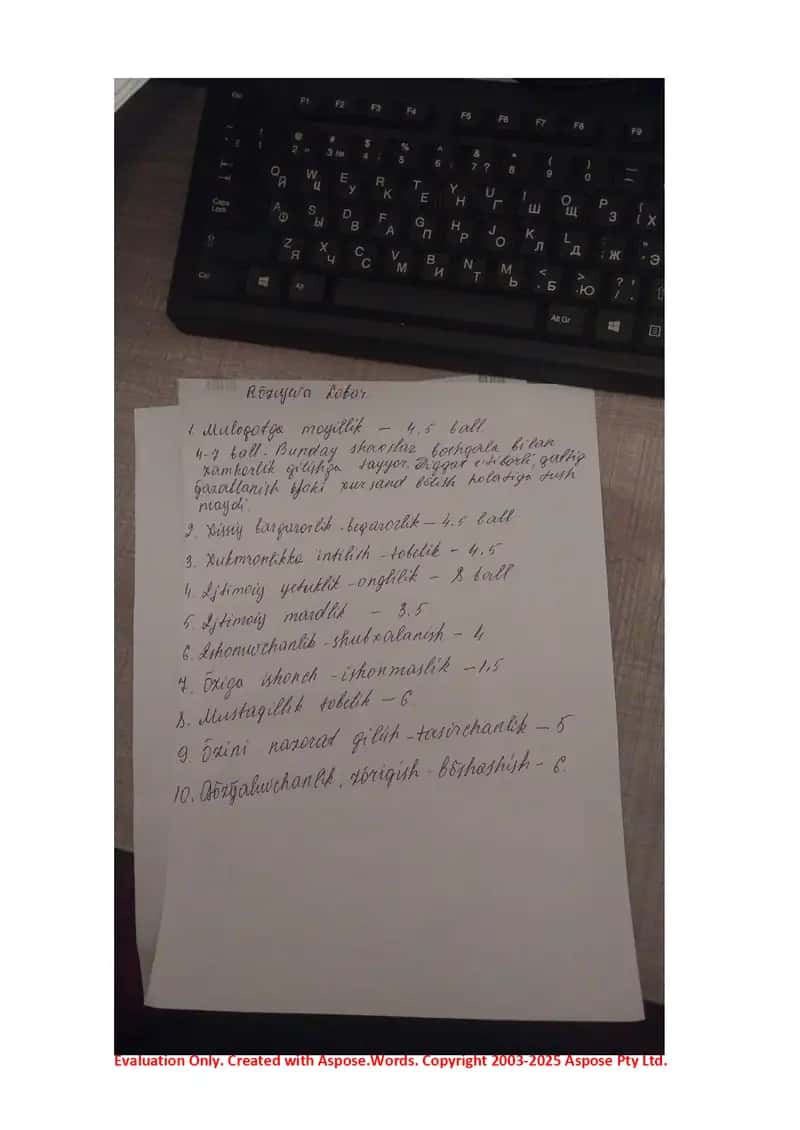 Rōziyeva Lobar
1. Muloqotga moyillik – 4.5 ball
4-7 ball. Bunday shaxslar boshqala bilan
xamkorlik qilishga tayyor. Diqqat e'tiborli, qattiq
ğazablanish yoki xursand bōlish holatiga tush
maydi.
2. Xissiy barqarorlik - beqarorlik – 4.5 ball
3. Xukmronlikka intilish - tobelik – 4.5
4. Ijtimoiy yetuklik - onglilik – 8 ball
5. Ijtimoiy mardlik – 3.5
6. Ishonuvchanlik - shubxalanish – 4
7. Ōziga ishonch - ishonmaslik – 1,5
8. Mustaqillik tobelik – 6
9. Ōzini nazorat qilish - tasirchanlik – 5
10. zōriqish - bōshashish – 6.
Esc F1 F2 F3 F4 F5 F6 F7 F8 F9
Caps Lock
Ctrl Alt Alt Gr
Evaluation Only. Created with Aspose.Words. Copyright 2003-2025 Aspose Pty Ltd.